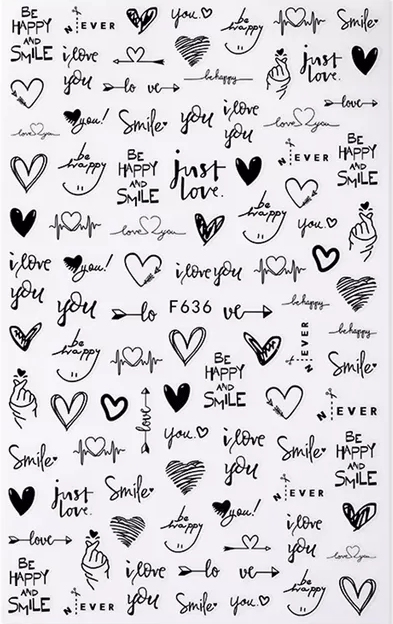 BE HAPPY AND SMILE
N EVER
you.
be happy
Smile
i love you
lo ve
be happy
just love.
love
you!
Smile
you
i love you
love you
be happy
BE HAPPY AND SMILE
just love.
N EVER
BE HAPPY AND SMILE
love you
be happy
you.
i love you
you!
i love you
you
lo
F636
ve
be happy
be happy
BE HAPPY AND SMILE
N EVER
be happy
Smile
love
N EVER
Smile
you.
i love you
Smile
BE HAPPY AND SMILE
just love.
Smile
N EVER
be happy
you!
i love you
love
love you
BE HAPPY AND SMILE
N EVER
i love you
lo ve
Smile
you.
be happy